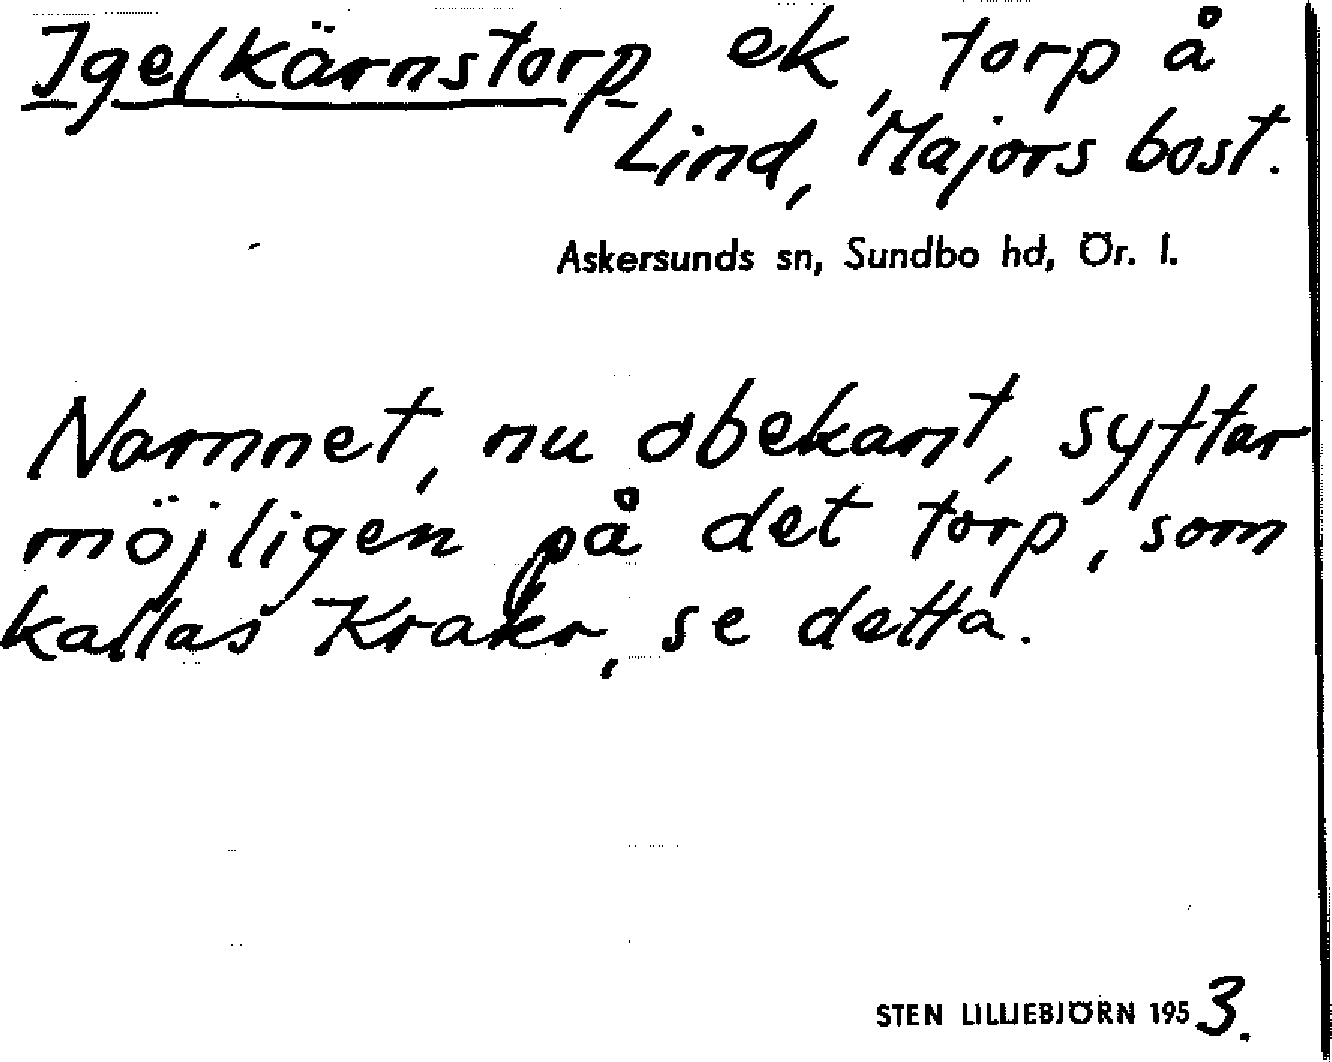 Igelkärnstorp ek, torp å
Lind, Majors bost.
Askersunds sn, Sundbo hd, Ör. l.
Namnet, nu obekant, syftar
möjligen på det torp, som
kallas Kraker, se detta.
STEN LILLIEBJÖRN 1953.